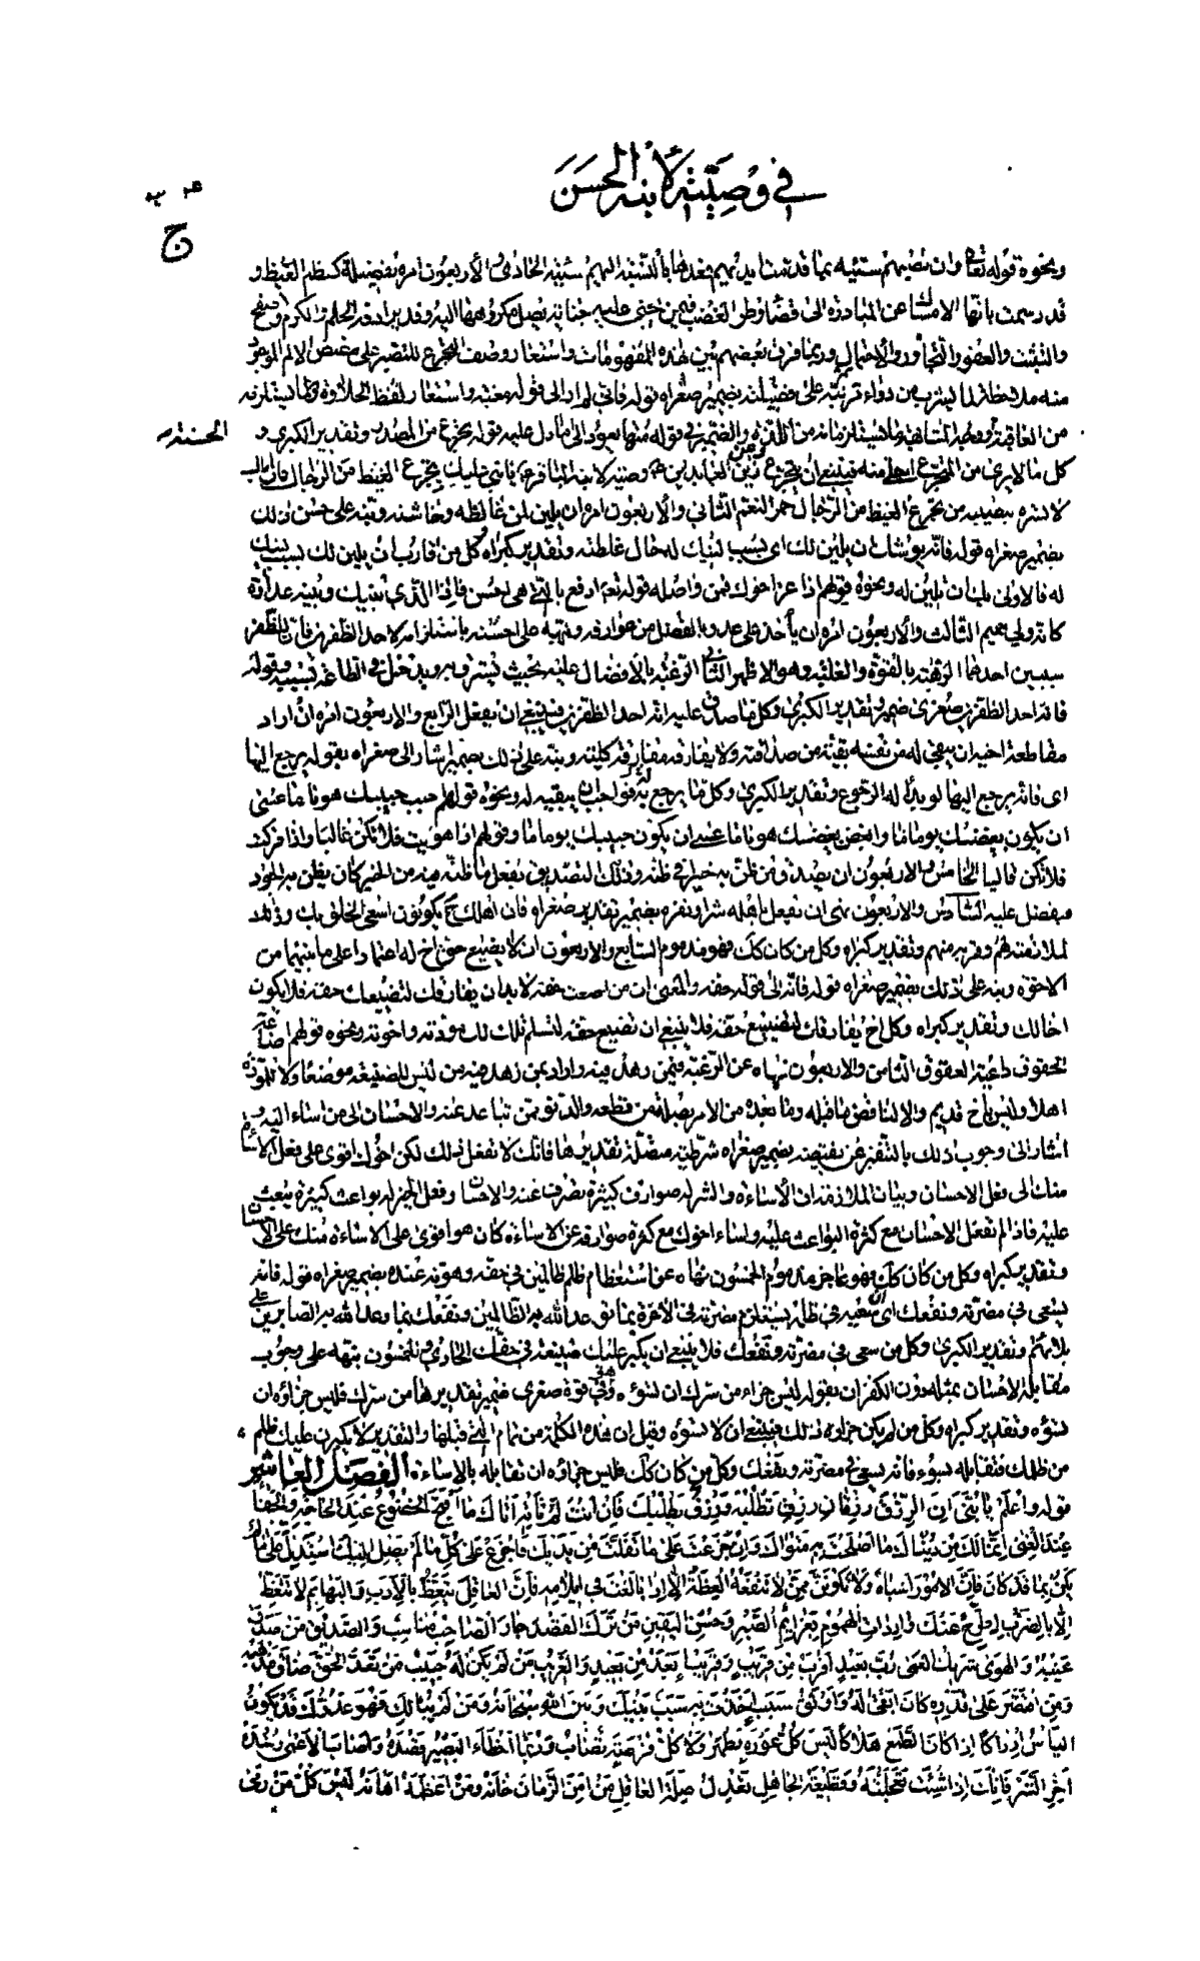 في وصيته لابنه الحسن
ج
ونحوه قوله تعالى وان تصبهم سيئة بما قدمت ايديهم بعدها بالسيئة الحادى والأربعون امره بفضيلة كظم الغيظ و
قد رسمت بانها الامساك عن المبادرة الى قضاء وطر الغضب فيمن يجنى عليه جناية يصل مكروهها اليه وقد يرادفه الحلم والكرم والصفح
والتثبت والعفو والتجاوز والأحتمال وربما فرق بعضهم بين هذه المفهومات واستعار وصف التجرع للتصبر على مضض الالم الموجود
منه ملاحظة لما يشرب من دواء مر ونبه على فضيلته بضمير صغراه قوله فانى لم ار الى قوله مغبة واستعار لفظ الحلاوة لما يستلزمه
الحسنة
من العاقبة ووجه المشابهة ما يستلزمانه من اللذة والضمير فى قوله منها يعود الى ما دل عليه قوله تجرع من المصدر وتقدير الكبرى و
كل ما لا يرى من التجرع احلى منه فينبغى ان يتجرع وعن زين العابدين وصيته لابنه الباقر يا بنى عليك بتجرع الغيظ من الرجال فان اباك
لا يسره بنصيبه من تجرع الغيظ من الرجال حمر النعم الثانى والأربعون امره ان يلين لمن غالظه وخاشنه ونبه على حسن ذلك
بضمير صغراه قوله فانه يوشك ان يلين لك اى بسبب لينك له حال غلظته وتقدير كبراه وكل من قارب ان يلين لك بسبب لينك
له فالاولى بك ان تلين له ونحوه قولهم اذا عز اخوك فهن واصله قوله تعالى ادفع بالتى هى احسن فاذا الذى بينك وبينه عداوة
كانه ولى حميم الثالث والأربعون امره ان يأخذ على عدوه بالفضل من عوارفه ونبهه على حسنه باستلزامه لاحد الظفرين فان للظفر
سببين احدهما الرهبة بالقوة والغلبة وهو الاظهر الثانى الرغبة بالأفضال عليه بحيث يسترق به ويدخل فى الطاعة بسببه وقوله
فانه احد الظفرين صغرى ضمير وتقدير الكبرى وكل ما صدق عليه انه احد الظفرين فينبغى ان يفعل الرابع والاربعون امره ان اراد
مقاطعة اخيه ان يبقى له من نفسه بقية من صداقته ولا يفارقه مفارقة كلية ونبه على ذلك بضمير اشار الى صغراه بقوله يرجع اليها
اى فانه يرجع اليها لو بدا له الرجوع وتقدير الكبرى وكل ما يرجع اليه فواجب ان يبقيه له ونحوه قولهم حبب حبيبك هونا ما عسى
ان يكون بغيضك يوما ما وابغض بغيضك هونا ما عسى ان يكون حبيبك يوما ما وقولهم اذا هويت فلا تكن غاليا واذا تركت
فلا تكن قاليا الخامس والاربعون ان يصدق من ظن به خيرا فى ظنه وذلك التصديق بفعل ما ظنه فيه من الخير كأن يظن به الجود
فيفضل عليه السادس والاربعون نهى ان يفعل باهله شرا ونفره بضمير تقدير صغراه فان اهلك ح يكونون اشقى الخلق بك وذلك
لملازمته لهم وقربه منهم وتقدير كبراه وكل من كان كك فهو مذموم السابع والاربعون ان لا يضيع حق اخ له اعتمادا على ما بينهما من
الاخوة ونبه على ذلك بضمير صغراه قوله فانه الى قوله حقه والمعنى ان من اضعت حقه لا بد ان يفارقك لتضييعك حقه فلا يكون
اخا لك وتقدير كبراه وكل اخ يفارقك لتضييع حقه فلا ينبغى ان تضيع حقه لتسلم لك مودته واخوته ونحوه قولهم اضاعة
الحقوق داعية العقوق الثامن والاربعون نهاه عن الرغبة فيمن زهد فيه واراد بمن زهد فيه من ليس للصنيعة موضعا ولا للمودة
اهلا وليس باخ قديم والا لناقض ما قبله وما بعده من الامر بصلة من قطعه والدنو ممن تباعد عنه والاحسان الى من اساء اليه و
اشار الى وجوب ذلك بالتنفير عن نقيضه بضمير صغراه شرطية متصلة تقديرها فانك لا تفعل ذلك لكن اخوك اقوى على فعل الاساءة
منك الى فعل الاحسان وبيان الملازمة ان الأساءة والشر له صوارف كثيرة تصرف عنه والاحسان وفعل الخير له بواعث كثيرة تبعث
عليه فاذا لم تفعل الاحسان مع كثرة البواعث عليه واساء اخوك مع كثرة صوارفه عن الاساءة كان هو اقوى على الاساءة منك على الاحسان
وتقدير كبراه وكل من كان كك فهو عاجز مذموم الخمسون نهاه عن استعظام ظلم ظالمين فى حقه وهونه عنده بضمير صغراه قوله فانه
يسعى فى مضرته ونفعك اى ان سعيه فى ظلمه يستلزم مضرته فى الأخرة بما توعد الله به الظالمين ونفعك بما وعد الله به الصابرين على
بلائهم وتقدير الكبرى وكل من سعى فى مضرته ونفعك فلا ينبغى ان يكبر عليك صنيعه فى حقك الحادى والخمسون نبهه على وجوب
مقابلة الاحسان بمثله دون الكفر ان بقوله ليس جزاء من سرك ان تسوءه وهو فى قوة صغرى ضمير تقديرها من سرك فليس جزاؤه ان
تسوءه وتقدير كبراه وكل من لم يكن جزاؤه ذلك فينبغى ان لا تسوءه وقيل ان هذه الكلمة من تمام التى قبلها والتقدير لا يكبرن عليك ظلم
من ظلمك فتقابله بسوء فانه يسعى فى مضرته ونفعك وكل من كان كك فليس جزاؤه ان تقابله بالاساءة الفصل العاشر
قوله واعلم يا بُنَىَّ ان الرِّزْقَ رِزْقانِ رِزْقٌ تَطْلُبُهُ وَرِزْقٌ يَطْلُبُكَ فَاِنْ اَنْتَ لَمْ تَأْتِهِ اَتاكَ ما اَقْبَحَ الخُضُوعَ عِنْدَ الحاجَةِ وَالجَفاءَ
عِنْدَ الغِنى اِنَّما لَكَ مِنْ دُنْياكَ ما اَصْلَحْتَ بِهِ مَثْواكَ وَاِنْ جَزِعْتَ عَلى ما تَفَلَّتَ مِنْ يَدَيْكَ فَاجْزَعْ عَلى كُلِّ ما لَمْ يَصِلْ اِلَيْكَ اسْتَدِلَّ عَلى ما لَمْ
يَكُنْ بِما قَدْ كانَ فَاِنَّ الاُمُورَ اَشْباهٌ وَلا تَكُونَنَّ مِمَّنْ لا تَنْفَعُهُ العِظَةُ اِلّا اِذا بالَغْتَ فى ايلامِهِ فَاِنَّ العاقِلَ يَتَّعِظُ بِالاَدَبِ وَالبَهائِمَ لا تَتَّعِظُ
اِلّا بِالضَّرْبِ اِطْرَحْ عَنْكَ وارِداتِ الهُمُومِ بِعَزائِمِ الصَّبْرِ وَحُسْنِ اليَقينِ مَنْ تَرَكَ القَصْدَ جارَ وَالصّاحِبُ مُناسِبٌ وَالصَّديقُ مَنْ صَدَقَ
غَيْبُهُ وَالهَوى شَريكُ العَمى رُبَّ بَعيدٍ اَقْرَبُ مِنْ قَريبٍ وَقَريبٍ اَبْعَدُ مِنْ بَعيدٍ وَالغَريبُ مَنْ لَمْ يَكُنْ لَهُ حَبيبٌ مَنْ تَعَدَّى الحَقَّ ضاقَ مَذْهَبُهُ
وَمَنِ اقْتَصَرَ عَلى قَدْرِهِ كانَ اَبْقى لَهُ وَاَوْثَقُ سَبَبٍ اَخَذْتَ بِهِ سَبَبٌ بَيْنَكَ وَبَيْنَ اللهِ سُبْحانَهُ وَمَنْ لَمْ يُبالِكَ فَهُوَ عَدُوُّكَ قَدْ يَكُونُ
اليَأْسُ اِدْراكًا اِذا كانَ الطَّمَعُ هَلاكًا لَيْسَ كُلُّ عَوْرَةٍ تَظْهَرُ وَلا كُلُّ فُرْصَةٍ تُصابُ وَرُبَّما اَخْطَأَ البَصيرُ قَصْدَهُ وَاَصابَ الاَعْمى رُشْدَهُ
اَخِّرِ الشَّرَّ فَاِنَّكَ اِذا شِئْتَ تَعَجَّلْتَهُ وَقَطيعَةُ الجاهِلِ تَعْدِلُ صِلَةَ العاقِلِ مَنْ اَمِنَ الزَّمانَ خانَهُ وَمَنْ اَعْظَمَهُ اَهانَهُ لَيْسَ كُلُّ مَنْ رَمى